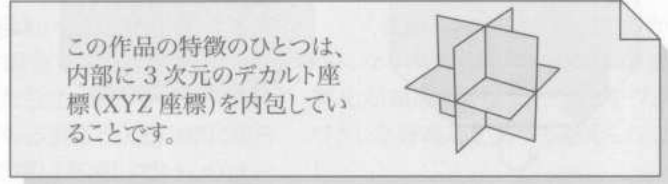 この作品の特徴のひとつは、
内部に3次元のデカルト座
標(XYZ座標)を内包してい
ることです。